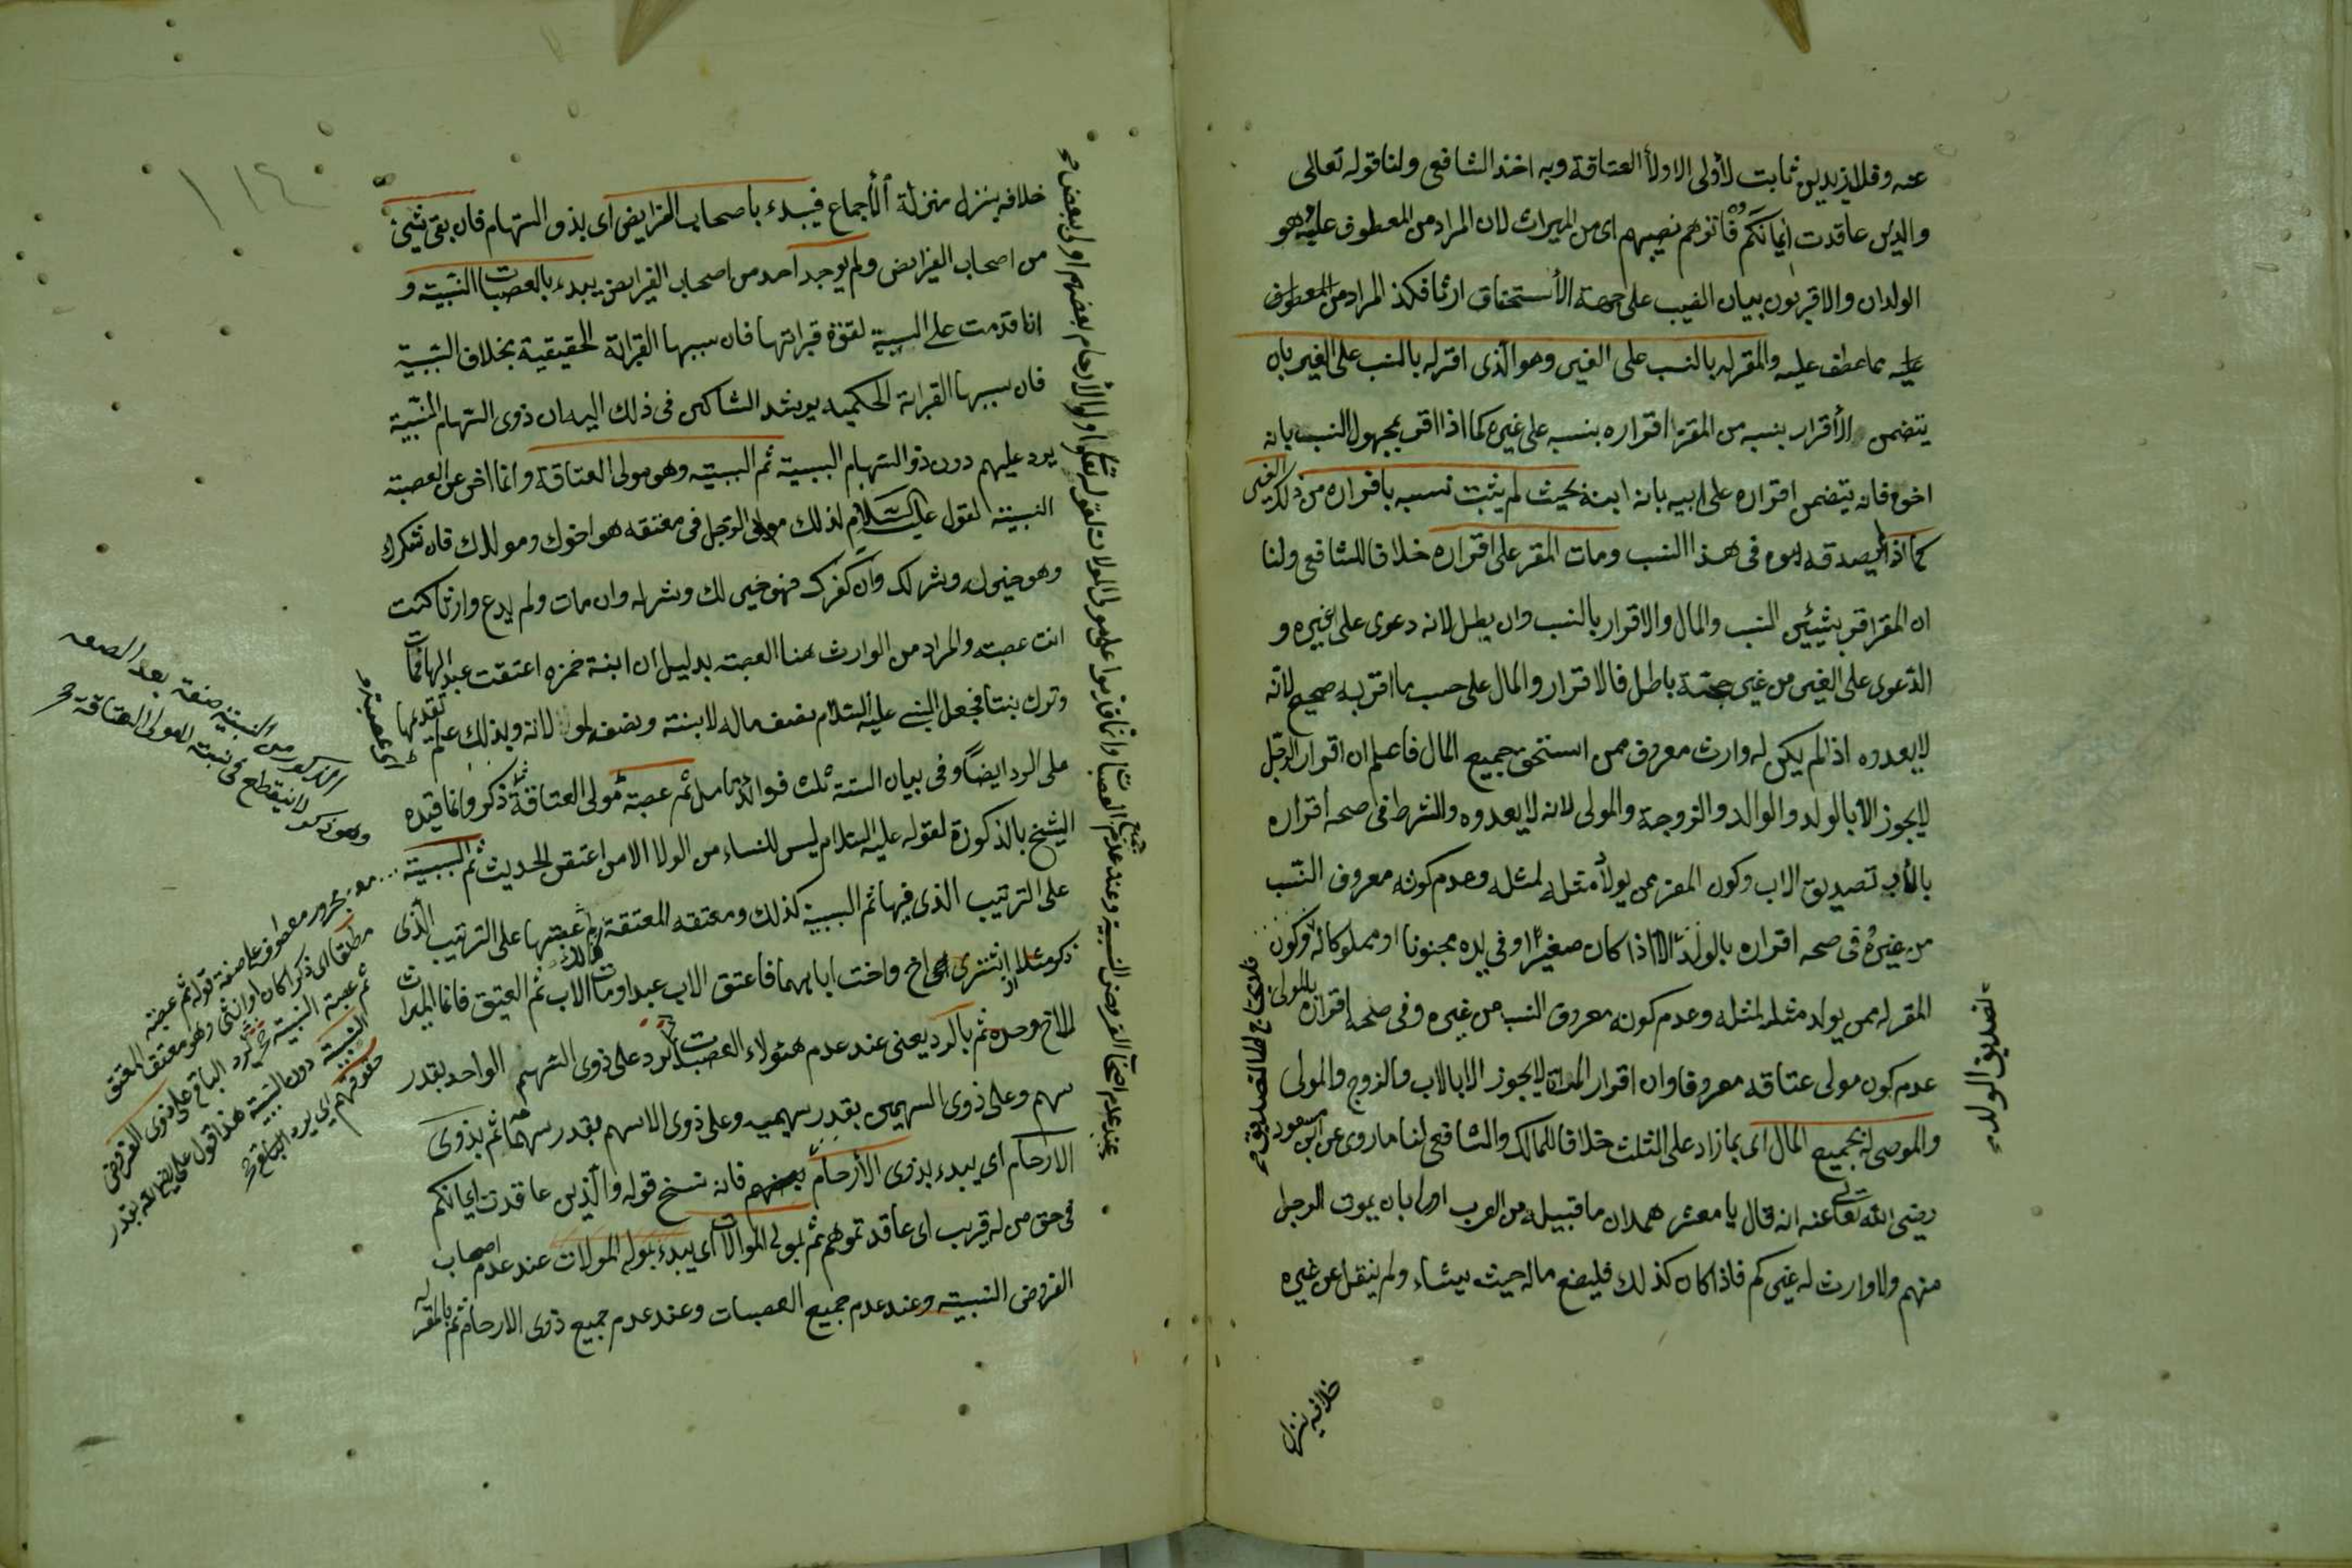 عنه وقلا زيد بن ثابت لأولى الاولأ العتاقة وبه اخذ الشافعى ولنا قوله تعالى
والذين عاقدت ايمانكم فاتوهم نصيبهم اى من الميراث لان المراد من المعطوف عليه وهو
الولدان والاقربون بيان النصيب على جهة الأستحقاق ارثا فكذ المراد من المعطوف
عليه مما عطف عليه والمقر له بالنسب على الغير وهو الذى اقر له بالنسب على الغير بان
يتضمن الأقرار بنسبه من المقر اقراره بنسبه على غيره كما اذا اقر بمجهول النسب بانه
اخوه فانه يتضمن اقراره على ابيه بانه ابنه بحيث لم يثبت نسبه باقراره من ذلك الغير
كما اذا لم يصدقه ابوه فى هذا النسب ومات المقر على اقراره خلافا للشافعى ولنا
ان المقر اقر بشيئين النسب والمال والاقرار بالنسب وان بطل لانه دعوى على غيره و
الدعوى على الغير من غير حجة باطل فالاقرار والمال على حسب ما اقر به صحيح لانه
لا يعدوه اذ لم يكن له وارث معروف ممن استحق جميع المال فاعلم ان اقرار الرجل
لا يجوز الا بالولد والوالد والزوجة والمولى لانه لا يعدوه والشرط فى صحه اقراره
بالأب تصديق الاب وكون المقر ممن يولد مثله لمثله وعدم كونه معروف النسب
من غيره فى صحه اقراره بالولد الا اذا كان صغيرا وفى يده مجنونا او مملوكا له وكون
المقر له ممن يولد مثله لمثله وعدم كونه معروف النسب من غيره وفى صحه اقراره بالمولى
عدم كون مولى عتاقه معروفا وان اقرار المراة لا يجوز الا بالاب والزوج والمولى
والموصى له بجميع المال اى بما زاد على الثلث خلافا للمالك والشافعى لنا ما روى عن ابن مسعود
رضى الله تعالى عنه انه قال يا معشر همدان ما قبيله من العرب اولى بان يموت الرجل
منهم ولا وارث له غيركم فاذا كان كذلك فليضع ماله حيث يشاء ولم ينقل عن غيره
تصديق الولد
فلا يحتاج الى التصديق
خلافه ينزل
١١٤
خلافه ينزل منزلة الأجماع فيبدء باصحاب الفرايض اى بذو السهام فان بقى شئ
من اصحاب الفرايض ولم يوجد احد من اصحاب الفرايض يبدء بالعصبات النسبية و
انما قدمت على السببية لقوة قرابتها فان سببها القرابة الحقيقية بخلاف السببية
فان سببها القرابة الحكميه يرشد الشاكين فى ذلك اليه ان ذوى السهام النسبية
يرد عليهم دون ذو السهام السببية ثم السببيه وهو مولى العتاقة وانما اخر عن العصبة
النسبيته لقول عليه السلام لذلك مولى الرجل فى معتقه هو اخوك ومولاك فان شكرك
وهو خير له وشر لك وان كفرك فهو خير لك وشر له وان مات ولم يدع وارثا كنت
انت عصبته والمراد من الوارث هنا العصبه بدليل ان ابنة حمزه اعتقت عبدا لها فمات
وترك بنتا فجعل النبى عليه السلام نصف ماله لابنته ونصفه لمولانه وبذلك علم تقديمها
على الرد ايضا وفى بيان الستة ثلث فوائد تامل ثم عصبة مولى العتاقة ذكر وانما قيده
الشيخ بالذكورة لقوله عليه السلام ليس للنساء من الولا الا من اعتقن الحديث ثم السببية
على الترتيب الذى فيها ثم السببية كذلك ومعتقه المعتقة ثم عصبتها على الترتيب الذى
ذكر مثلا ان اشترى اخ واخت اباهما فاعتق الاب عبدا ومات الاب ثم العتيق فانما الميراث
للاخ وحده ثم بالرد يعنى عند عدم هئولاء العصبات يرد على ذوى السهم الواحد بقدر
سهم وعلى ذوى السهمين بقدر سهميه وعلى ذوى الاسهم بقدر سهمه ثم بذوى
الارحام اى يبدء بذوى الأرحام بعضهم فانه نسخ قوله والذين عاقدت ايمانكم
فى حق من له قريب اى عاقدتموهم ثم بمولى الموالات اى يبدء بمولى المولات عند عدم اصحاب
الفروض النسبيته وعند عدم جميع العصبات وعند عدم جميع ذوى الارحام ثم بالمقر له
بعضهم اولى ببعض
اى عصبته
المذكور من النسبية صفة بعد الصفه